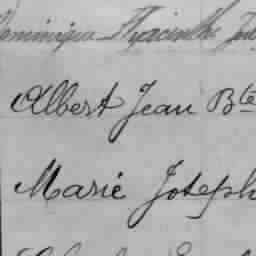 Dominique Hyacinthe Jos
Albert Jean Bte
Marie Joseph